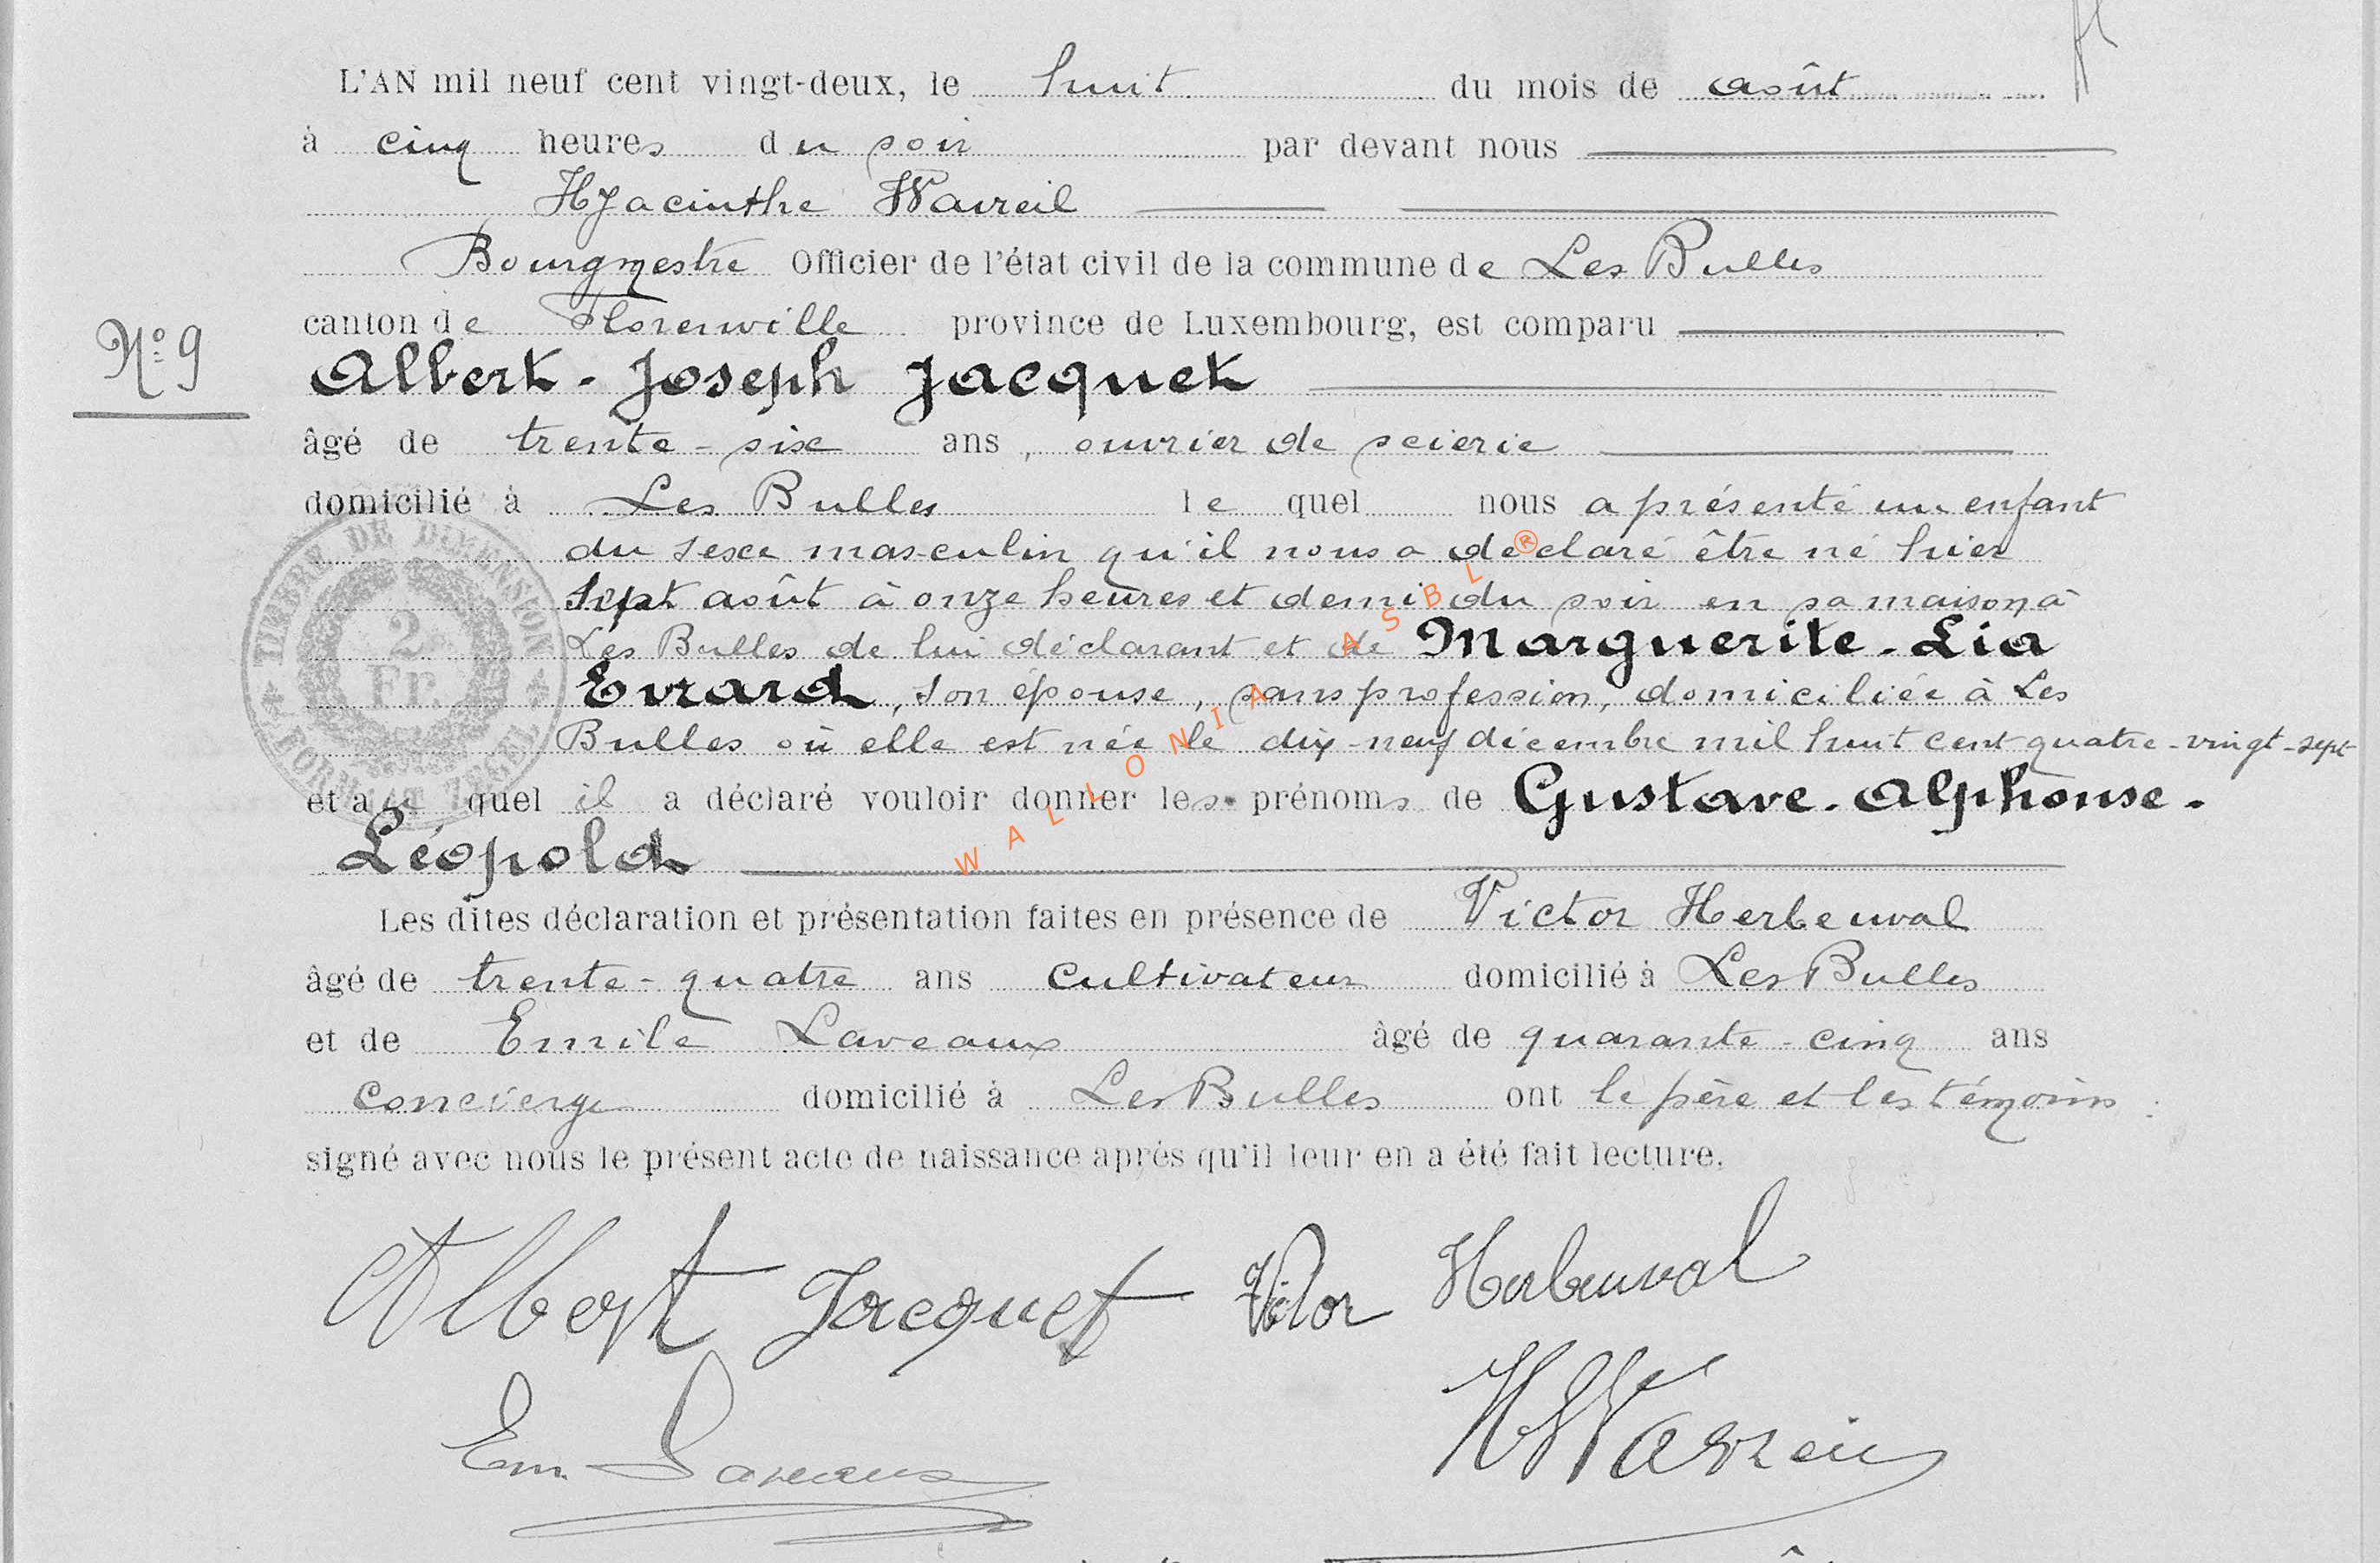 L'AN mil neuf cent vingt-deux, le huit du mois de août
à cinq heures du soir par devant nous
Hyacinthe Wavreil
Bourgmestre Officier de l'état civil de la commune de Les Bulles
canton de Florenville province de Luxembourg, est comparu
N° 9
Albert-Joseph Jacquet
âgé de trente-six ans, ouvrier de scierie
domicilié à Les Bulles lequel nous a présenté un enfant
du sexe masculin qu'il nous a déclaré être né hier
sept août à onze heures et demi du soir en sa maison à
Les Bulles de lui déclarant et de Marguerite-Lia
Evrard, son épouse, sans profession, domiciliée à Les
Bulles où elle est née le dix-neuf décembre mil huit cent quatre-vingt-sept
et au quel il a déclaré vouloir donner les prénoms de Gustave-Alphonse-
Léopold
Les dites déclaration et présentation faites en présence de Victor Herbeuval
âgé de trente-quatre ans cultivateur domicilié à Les Bulles
et de Emile Laveaux âgé de quarante-cinq ans
concierge domicilié à Les Bulles ont le père et les témoins
signé avec nous le présent acte de naissance après qu'il leur en a été fait lecture.
Albert Jacquet Victor Herbeuval
Em. Laveaux H Wavreil
TIMBRE DE DIMENSION
2
Fr.
ZEGEL
WALLONIA ASBL ®